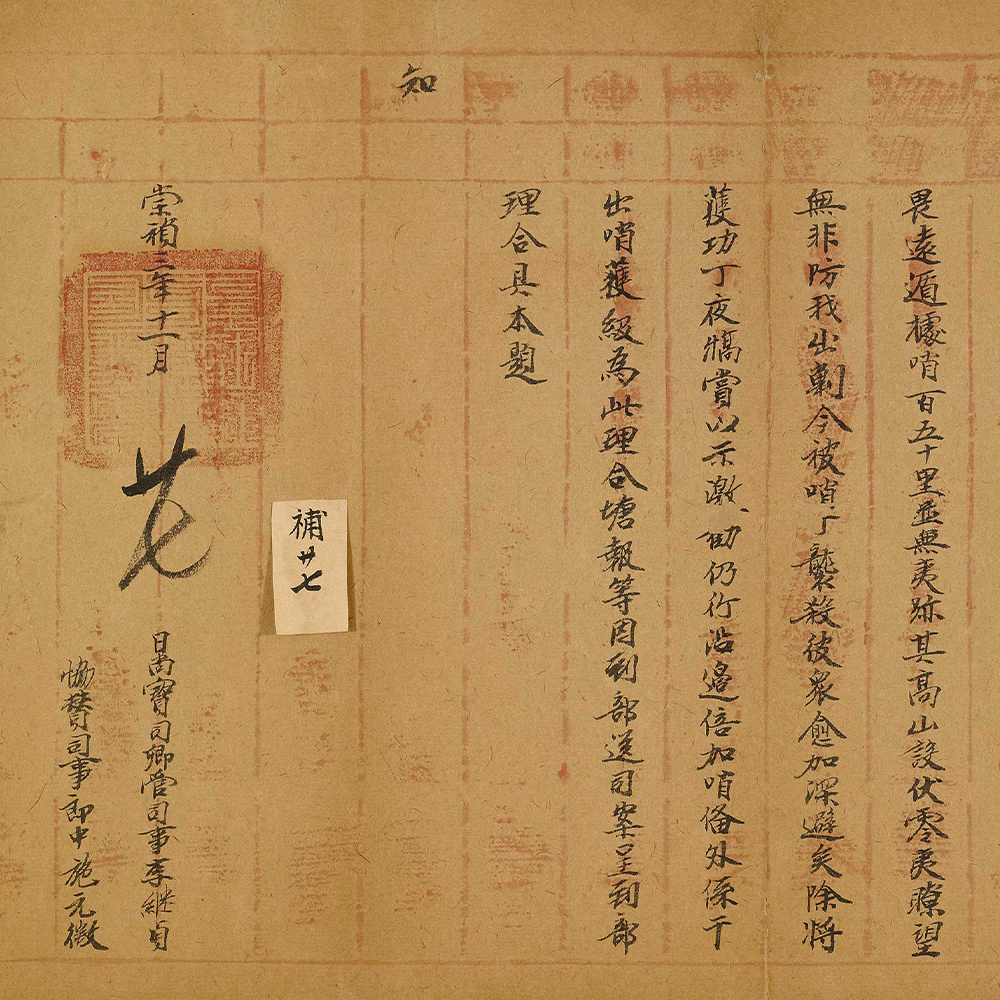 畏遠遁據哨百五十里並無夷跡其高山設伏零夷瞭望
無非防我出剿今被哨丁襲殺彼眾愈加深避矣除將
獲功丁夜犒賞以示激勸仍行沿邊倍加哨備外係干
出哨獲級為此理合塘報等因到部送司案呈到部
理合具本題
知
崇禎三年十一月
廿七
補廿七
尚寶司卿管司事李繼貞
協贊司事郎中施元徵